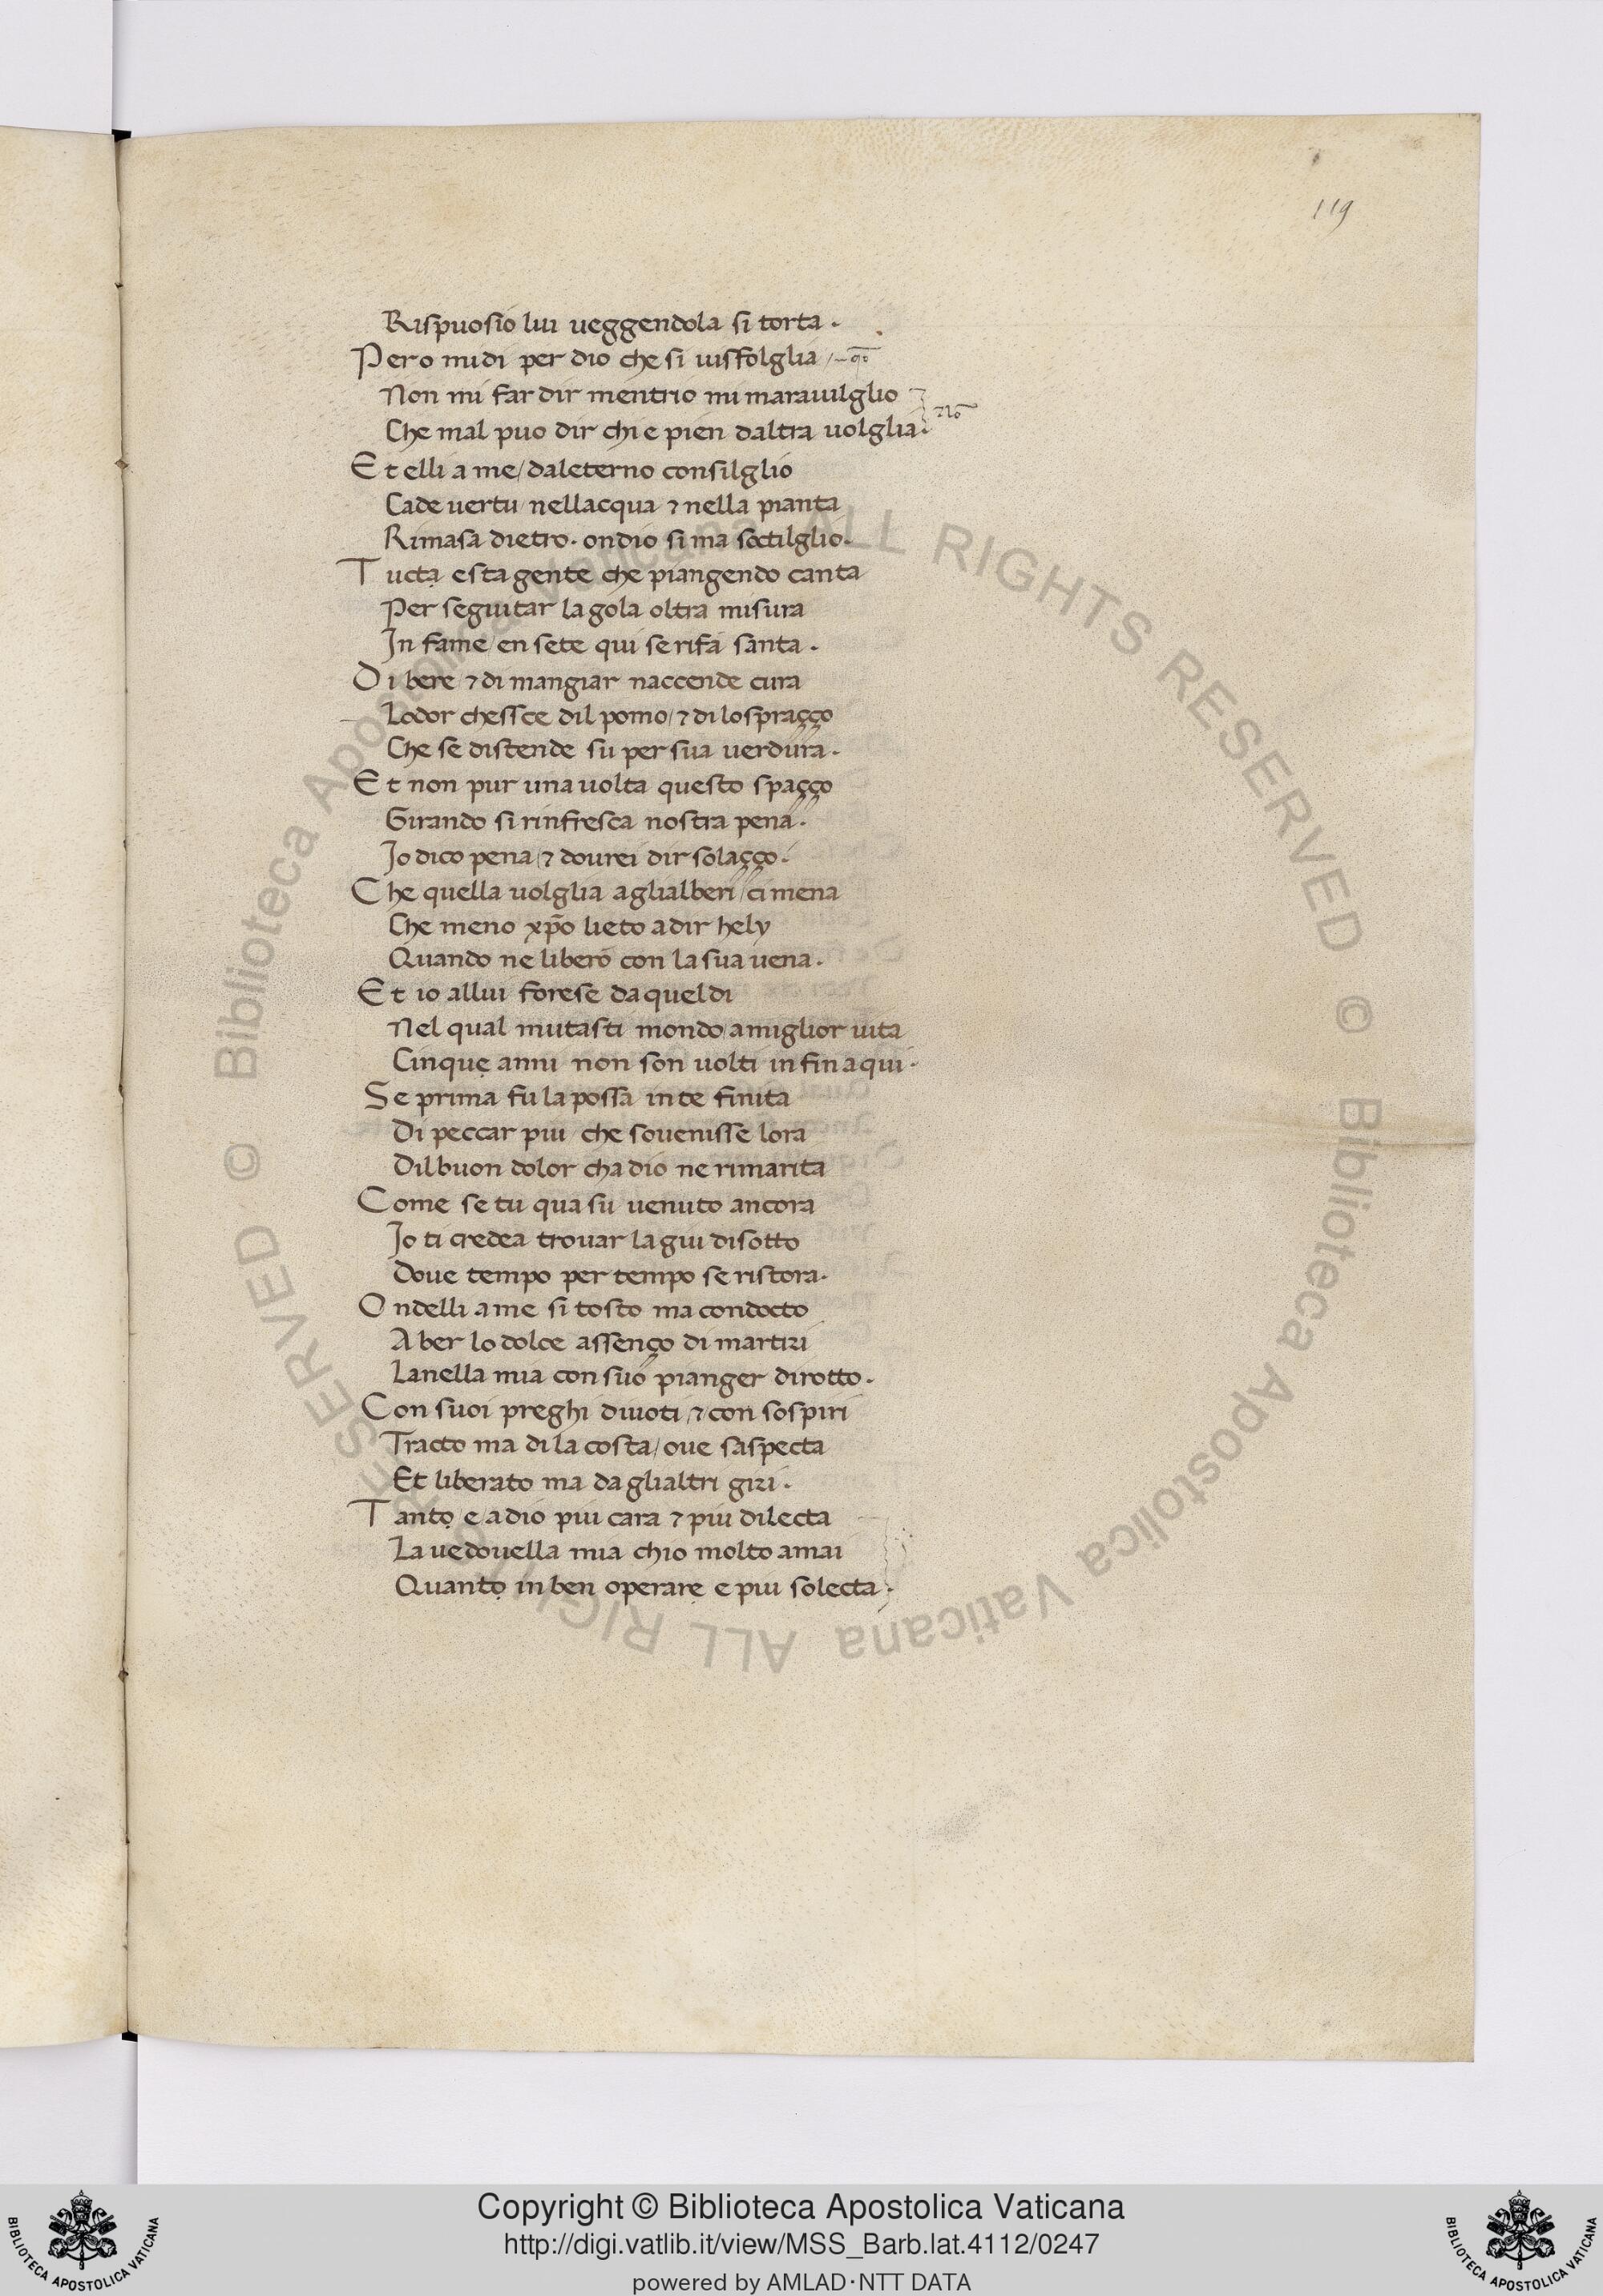 119
Rispuosio lui ueggendola si torta.
Pero mi di per dio che si uisfolglia
Non mi far dir mentrio mi marauilglio
Che mal puo dir chi e pien daltra uolglia. No
Et elli a me / daleterno consilglio
Cade uertu nellacqua ⁊ nella pianta
Rimasa dietro. ondio si ma soctilglio.
Tucta esta gente che piangendo canta
Per seguitar la gola oltra misura
In fame / en sete qui se rifa santa.
Di bere ⁊ di mangiar naccende cura
Lodor chessce dil pomo / ⁊ di lo spraçço
Che se distende su per sua uerdura.
Et non pur una uolta questo spaçço
Girando si rinfresca nostra pena.
Io dico pena / ⁊ dourei dir solaçço.
Che quella uolglia aglialberi / ci mena
Che meno xp̄o lieto a dir hely
Quando ne libero con la sua uena.
Et io allui forese da quel di
Nel qual mutasti mondo a miglior uita
Cinque anni non son uolti in fin a qui.
Se prima fu la possa in te finita
Di peccar piu che souenisse lora
Dil buon dolor cha dio ne rimarita
Come se tu qua su uenuto ancora
Io ti credea trouar la giu di sotto
Doue tempo per tempo se ristora.
Ondelli a me si tosto ma condocto
A ber lo dolce assenço di martiri
La nella mia con suo pianger dirotto.
Con suoi preghi diuoti / ⁊ con sospiri
Tracto ma di la costa / oue saspecta
Et liberato ma da glialtri giri.
Tanto e a dio piu cara ⁊ piu dilecta
La uedouella mia chio molto amai
Quanto in ben operare e piu solecta.
© Biblioteca Apostolica Vaticana ALL RIGHTS RESERVED © Biblioteca Apostolica Vaticana ALL RIGHTS RESERVED
Copyright © Biblioteca Apostolica Vaticana
http://digi.vatlib.it/view/MSS_Barb.lat.4112/0247
powered by AMLAD·NTT DATA
BIBLIOTECA APOSTOLICA VATICANA
BIBLIOTECA APOSTOLICA VATICANA